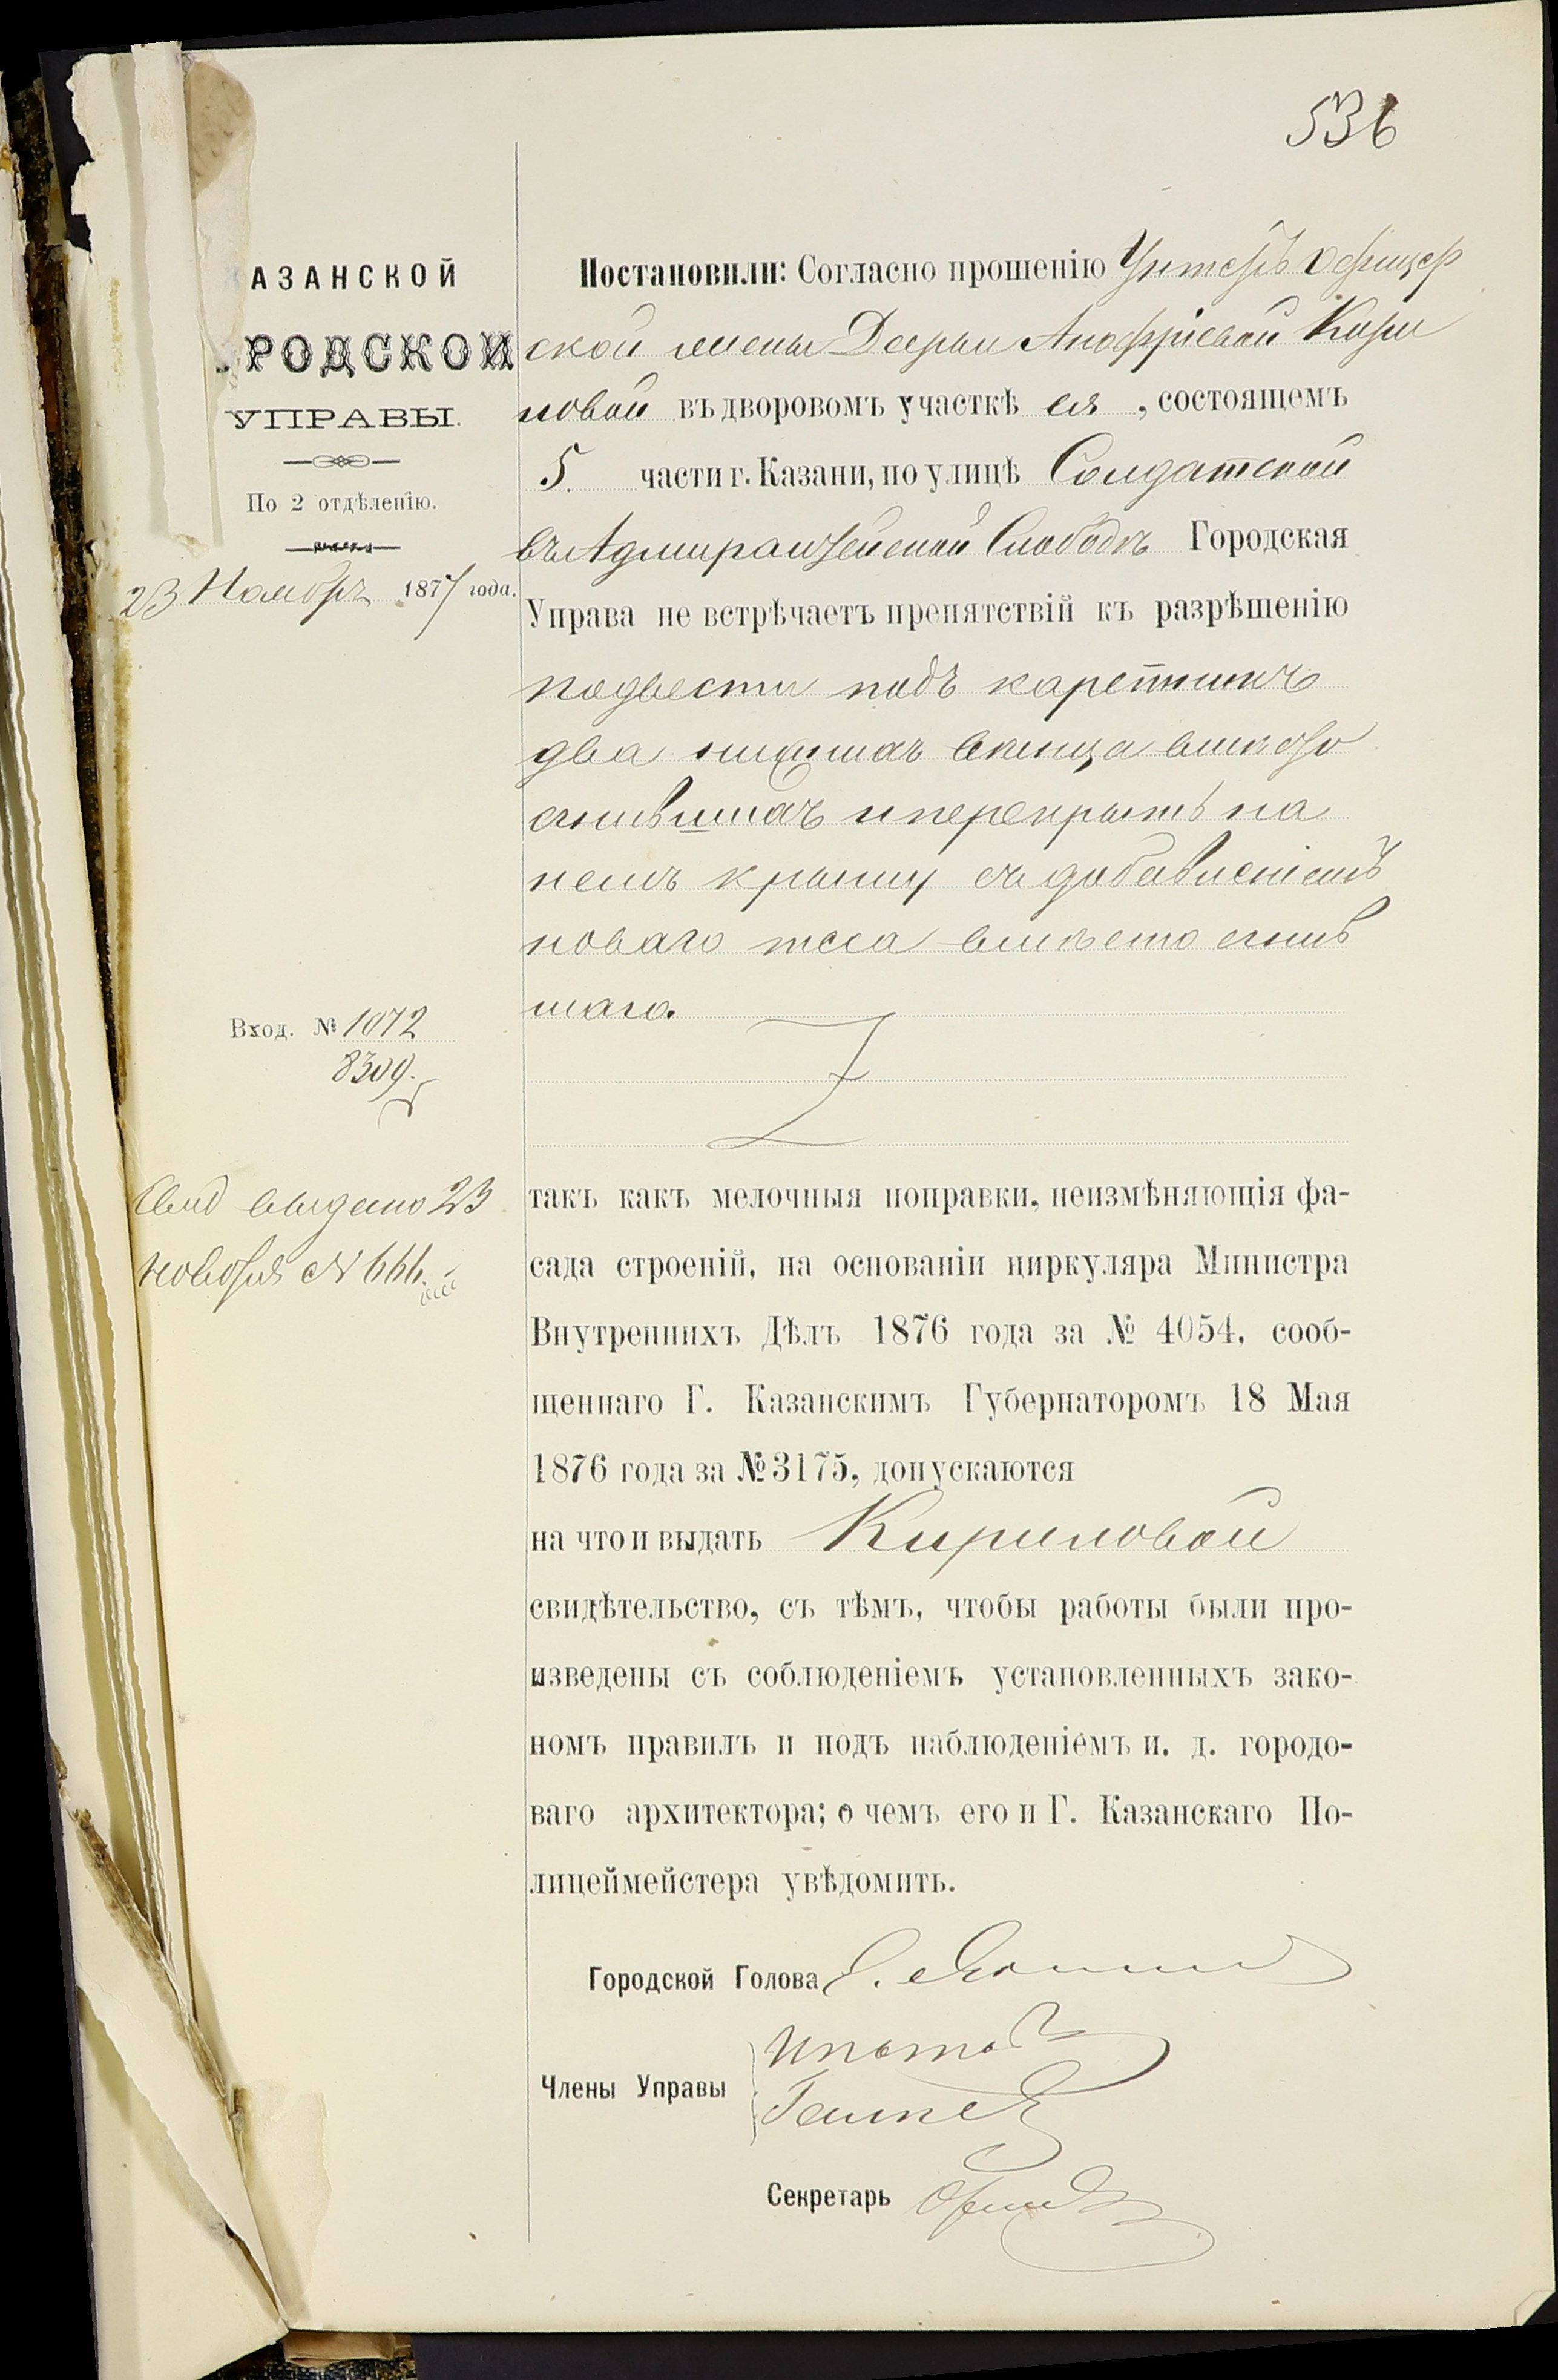 536
КАЗАНСКОЙ
ГОРОДСКОЙ
УПРАВЫ.
По 2 отдѣленію.
23 Ноября 1877 года.
Вход. № 1072
8309.
Свид выдано 23
ноября № 666.
Постановили: Согласно прошенію Унтеръ Офицер
ской жены Дарьи Анофріевой Кири
ловой въ дворовомъ участкѣ ея, состоящемъ
5 части г. Казани, по улицѣ Солдатской
въ Адмиралтейской Слободѣ Городская
Управа не встрѣчаетъ препятствій къ разрѣшенію
подвести подъ каретникъ
два нижнихъ вѣнца вмѣсто
сгнившихъ и перекрыть на
немъ крышу съ добавленіемъ
новаго теса вмѣсто сгнив
шаго.
такъ какъ мелочныя поправки, неизмѣняющія фа-
сада строеній, на основаніи циркуляра Министра
Внутреннихъ Дѣлъ 1876 года за № 4054, сооб-
щеннаго Г. Казанскимъ Губернаторомъ 18 Мая
1876 года за № 3175, допускаются
на что и выдать Кириловой
свидѣтельство, съ тѣмъ, чтобы работы были про-
изведены съ соблюденіемъ установленныхъ зако-
номъ правилъ и подъ наблюденіемъ и. д. городо-
ваго архитектора; о чемъ его и Г. Казанскаго По-
лицеймейстера увѣдомить.
Городской Голова
Члены Управы
Секретарь